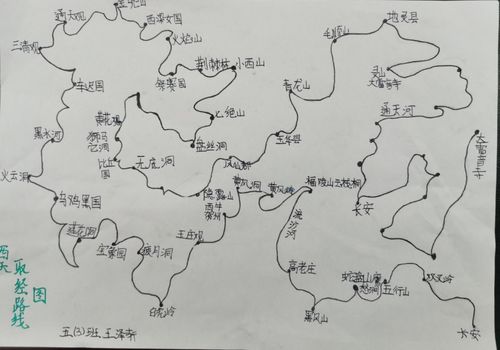 金兜山
通天河
西梁女国
火焰山
三清观
荆棘岭
小西山
祭赛国
车迟国
七绝山
黄花观
盘丝洞
黑水河
狮驼
比丘
国
无底洞
凤仙郡
火云洞
隐雾山
乌鸡国
莲花洞
宝象国
波月洞
白虎岭
毛颖山
地灵县
灵山
大雷音寺
青龙山
通天河
玉华县
大雷音寺
黄风洞
黄风岭
福陵山云栈洞
长安
西牛
贺州
流沙河
五庄观
高老庄
蛇盘山
五行山
双叉岭
黑风山
长安
西天
取经路线
图
五(3)班 王泽轩